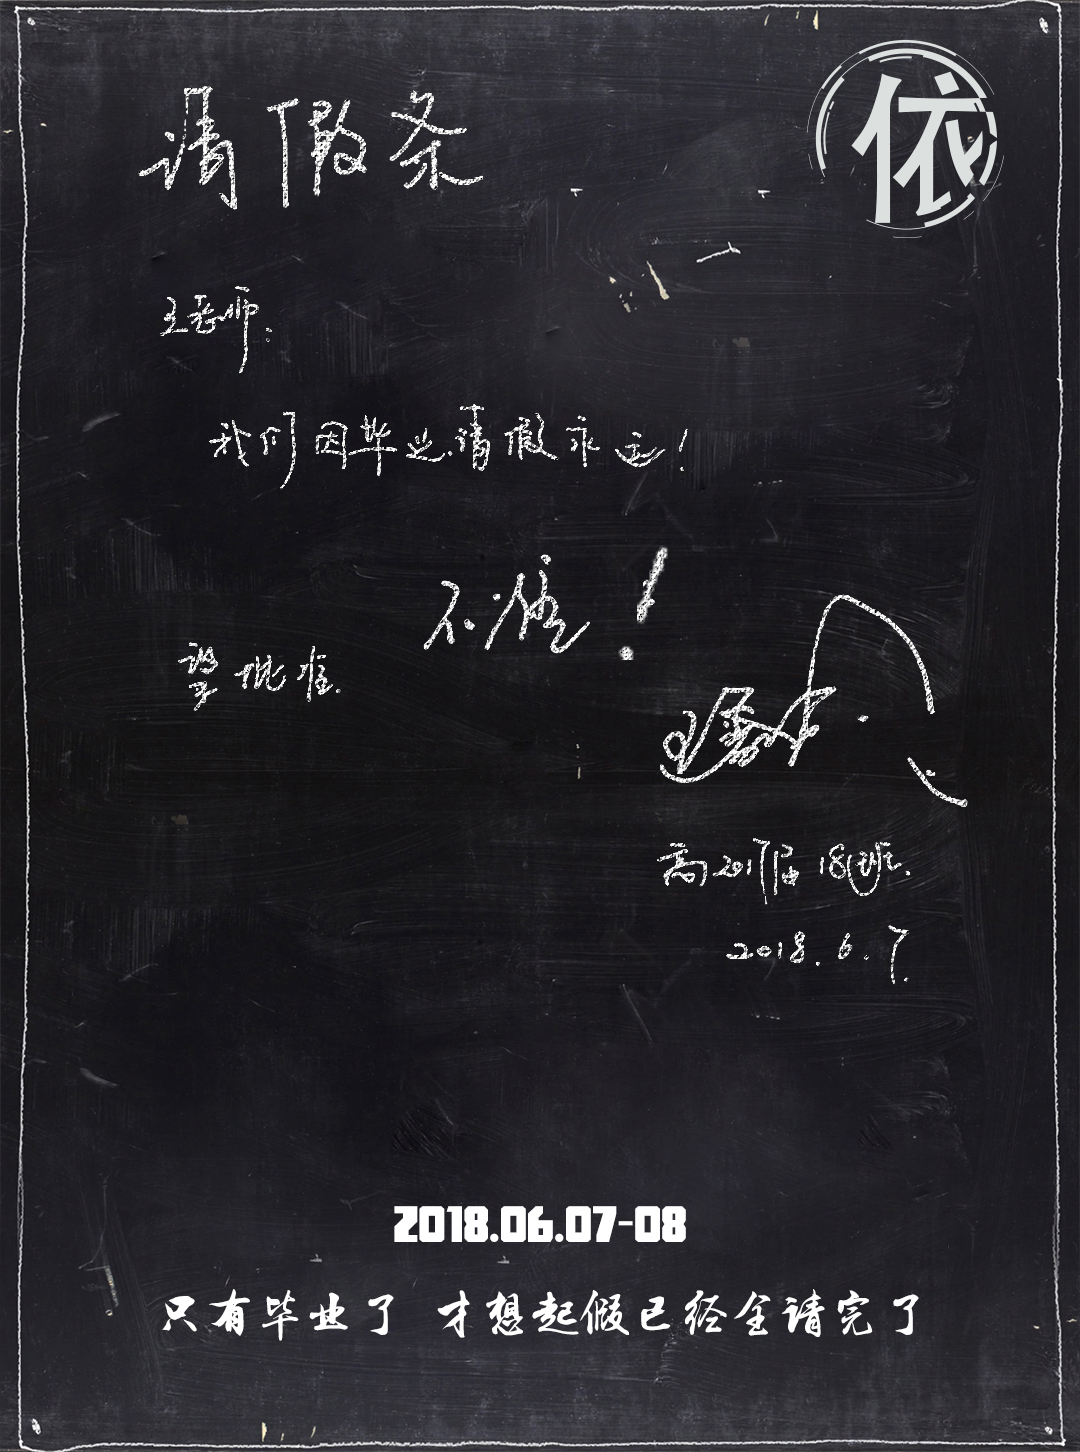 请假条
依
王老师：
我们因毕业请假永远！
不准！
望批准.
高2017届18班.
2018.6.7.
2018.06.07-08
只有毕业了 才想起假已经全请完了